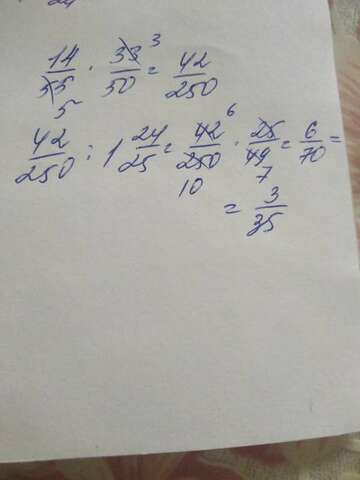 14/55 · 33/50 = 42/250
42/250 : 1 24/25 = 42/250 · 25/49 = 6/70 =
= 3/35